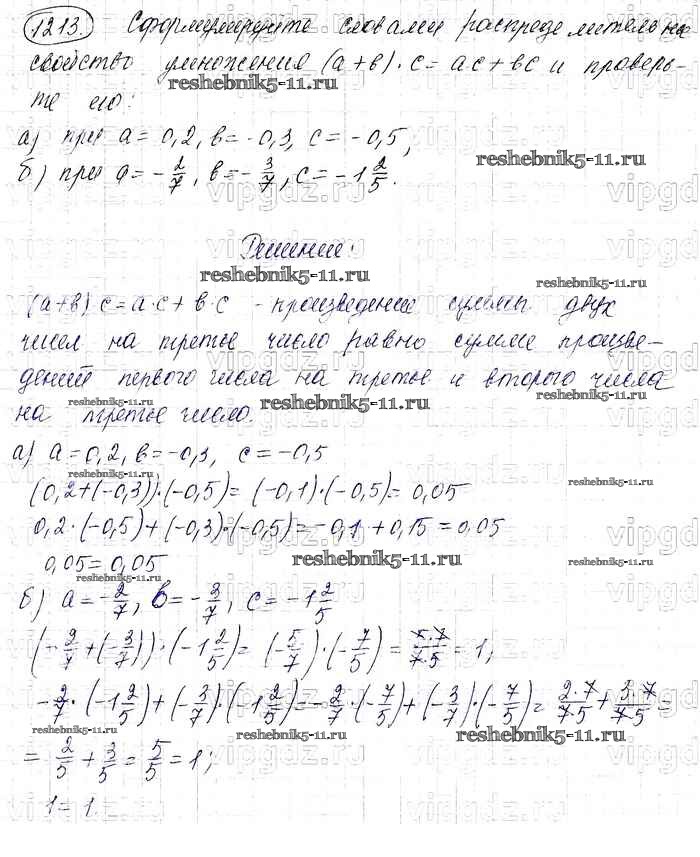 1213. Сформулируйте словами распределительное
свойство умножения (a+b)·c=ac+bc и проверь-
те его:
reshebnik5-11.ru
а) при a=0,2, b=-0,3, c=-0,5,
б) при a=-2/7, b=-3/7, c=-1 2/5.
reshebnik5-11.ru
vipgdz.ru
Решение.
reshebnik5-11.ru
(a+b)·c=a·c+b·c - произведение суммы двух
чисел на третье число равно сумме произве-
дений первого числа на третье и второго числа
на третье число.
reshebnik5-11.ru
а) a=0,2, b=-0,3, c=-0,5
reshebnik5-11.ru
(0,2+(-0,3))·(-0,5)=(-0,1)·(-0,5)=0,05
0,2·(-0,5)+(-0,3)·(-0,5)=-0,1+0,15=0,05
0,05=0,05
reshebnik5-11.ru
б) a=-2/7, b=-3/7, c=-1 2/5
(-2/7+(-3/7))·(-1 2/5)=(-5/7)·(-7/5)=5·7/7·5=1;
-2/7·(-1 2/5)+(-3/7)·(-1 2/5)=-2/7·(-7/5)+(-3/7)·(-7/5)=2·7/7·5+3·7/7·5=
reshebnik5-11.ru
=2/5+3/5=5/5=1;
1=1.
vipgdz.ru